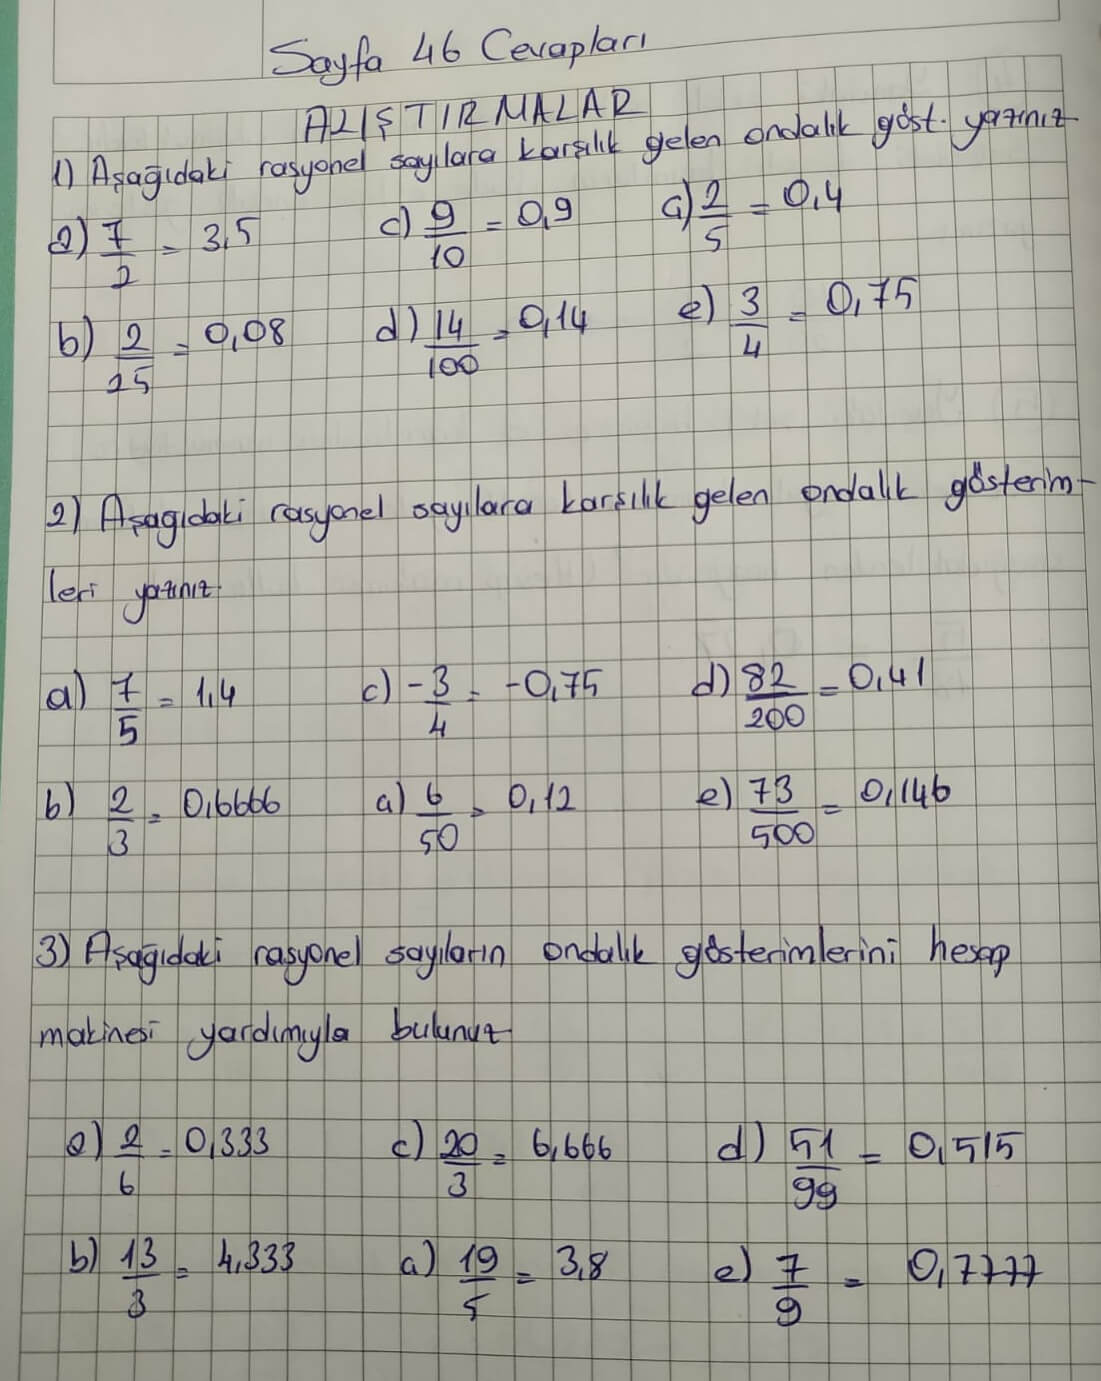 Sayfa 46 Cevapları
ALIŞTIRMALAR
1) Aşağıdaki rasyonel sayılara karşılık gelen ondalık göst. yazınız
a) 7/2 = 3,5 c) 9/10 = 0,9 ç) 2/5 = 0,4
b) 2/25 = 0,08 d) 14/100 = 0,14 e) 3/4 = 0,75
2) Aşağıdaki rasyonel sayılara karşılık gelen ondalık gösterim-
leri yazınız.
a) 7/5 = 1,4 c) -3/4 = -0,75 d) 82/200 = 0,41
b) 2/3 = 0,6666 ç) 6/50 = 0,12 e) 73/500 = 0,146
3) Aşağıdaki rasyonel sayıların ondalık gösterimlerini hesap
makinesi yardımıyla bulunuz
a) 2/6 = 0,333 c) 20/3 = 6,666 d) 51/99 = 0,515
b) 13/3 = 4,333 ç) 19/5 = 3,8 e) 7/9 = 0,7777